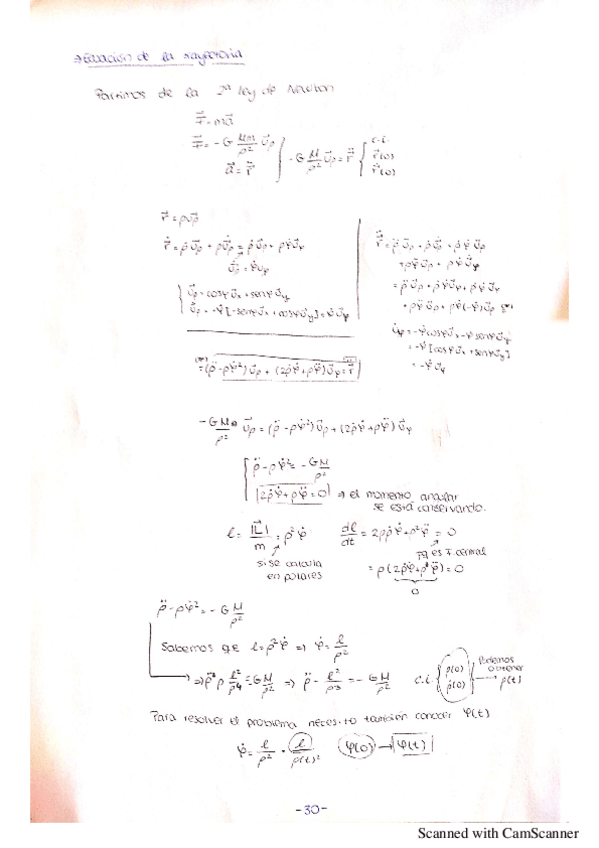 → Ecuación de la trayectoria
Partimos de la 2ª ley de Newton
F⃗ = ma⃗
F⃗ = -G Mm/ρ² u⃗ρ
a⃗ = r̈⃗
-G M/ρ² u⃗ρ = r̈⃗
c.i.
r⃗(0)
ṙ⃗(0)
r⃗ = ρu⃗ρ
ṙ⃗ = ρ̇u⃗ρ + ρu̇⃗ρ = ρ̇u⃗ρ + ρφ̇u⃗φ
u̇⃗ρ = φ̇u⃗φ
u⃗ρ = cosφu⃗x + senφu⃗y
u̇⃗ρ = -φ̇[-senφu⃗x + cosφu⃗y] = φ̇u⃗φ
= ρ̈u⃗ρ + ρ̇φ̇u⃗φ + ρ̇φ̇u⃗φ
+ ρφ̈u⃗φ + ρφ̇(-φ̇)u⃗ρ
u̇φ = -φ̇cosφu⃗x - φ̇senφu⃗y
= -φ̇[cosφu⃗x + senφu⃗y]
= (ρ̈ - ρφ̇²)u⃗ρ + (2ρ̇φ̇ + ρφ̈)u⃗φ = r̈⃗
-GM/ρ² u⃗ρ = (ρ̈ - ρφ̇²)u⃗ρ + (2ρ̇φ̇ + ρφ̈)u⃗φ
ρ̈ - ρφ̇² = -GM/ρ²
2ρ̇φ̇ + ρφ̈ = 0 → el momento angular
se está conservando.
l = |L⃗|/m = ρ²φ̇
dl/dt = 2ρρ̇φ̇ + ρ²φ̈ = 0
si se calcula
en polares
pq es F. central
= ρ(2ρ̇φ̇ + ρφ̈) = 0
0
ρ̈ - ρφ̇² = -G M/ρ²
Sabemos que l = ρ²φ̇ ⇒ φ̇ = l/ρ²
⇒ ρ̈ - l²/ρ³ = -G M/ρ²
c.i. { ρ(0)
ρ̇(0) }
Podemos
obtener
ρ(t)
Para resolver el problema necesito también conocer φ(t)
φ̇ = l/ρ² = l/ρ(t)²
φ(0) → φ(t)
-30-
Scanned with CamScanner